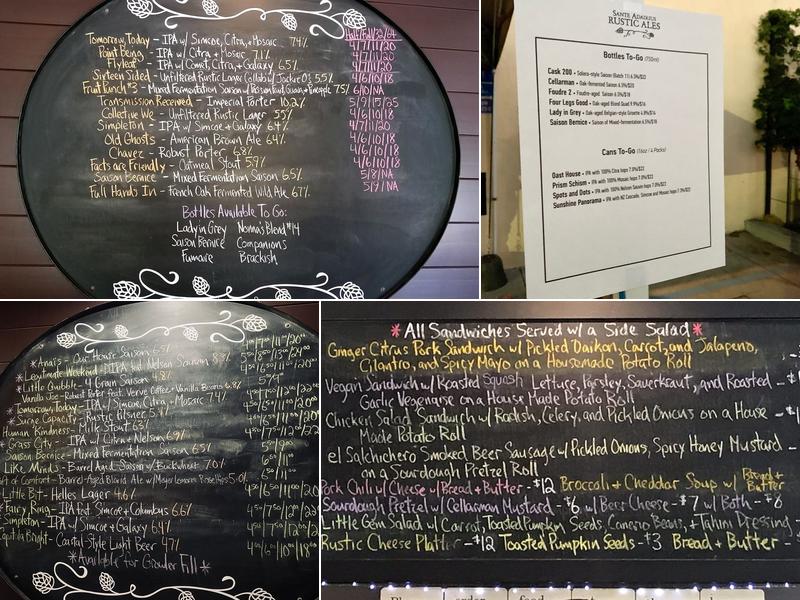 Half/Full/32/64
Tomorrow, Today - IPA w/ Simcoe, Citra, + Mosaic 7.4%
Point Being - IPA w/ Citra + Mosaic 7.1% 4/7/11/20
Flyleaf - IPA w/ Comet, Citra, + Galaxy 6.5% 4/7/11/20
Sixteen Sided - Unfiltered Rustic Lager (Collab w/ Jackie O's) 5.5% 4/6/10/18
Fruit Punch #3 - Mixed Fermentation Saison w/ Passion Fruit, Guava, + Pineapple 7.5% 6/10/NA
Transmission Received - Imperial Porter 10.2% 5/9/17/25
Collective We - Unfiltered Rustic Lager 5.5% 4/6/10/18
Simpleton - IPA w/ Simcoe + Galaxy 6.4% 4/7/11/20
Old Ghosts - American Brown Ale 6.4% 4/6/10/18
Chavez - Robust Porter 6.8% 4/6/10/18
Facts are Friendly - Oatmeal Stout 5.9% 4/6/10/18
Saison Bernice - Mixed Fermentation Saison 6.5% 5/8/NA
Full Hands In - French Oak Fermented Wild Ale 6.7% 5/9/NA
Bottles Available To Go:
Lady in Grey Nonna's Blend #14
Saison Bernice Companions
Fumaire Brackish
SANTE ADAIRIUS
RUSTIC ALES
Bottles To-Go (750ml)
Cask 200 • Solera-style Saison (Batch 11) 6.3%/$22
Cellarman • Oak-fermented Saison 6.5%/$18
Foudre 2 • Foudre-aged Saison 6.3%/$18
Four Legs Good • Oak-aged Blend Quad 9.9%/$16
Lady in Grey • Oak-aged Belgian-style Grisette 4.9%/$16
Saison Bernice • Saison of Mixed-fermentation 6.5%/$18
Cans To-Go (16oz / 4 Packs)
Oast House • IPA with 100% Citra hops 7.0%/$22
Prism Schism • IPA with 100% Mosaic hops 7.0%/$22
Spots and Dots • IPA with 100% Nelson Sauvin hops 7.0%/$22
Sunshine Panorama • IPA with NZ Cascade, Simcoe and Mosaic hops
*Anaïs - Our House Saison 6.5%
*Legitimate Meditations DIPA w/ Nelson Sauvin 8.3%
*Little Gubble - 4 Grain Saison 4.8%
Vanilla Joe - Robust Porter feat. Verve Coffee + Vanilla Beans 6.8%
*Tomorrow, Today - IPA w/ Simcoe, Citra, + Mosaic 7.4%
*Surge Capacity - Rustic Pilsner 5.4%
Human Kindness - Milk Stout 6.3%
*Grass City - IPA w/ Citra + Nelson 6.9%
Saison Bernice - Mixed Fermentation Saison 6.5%
Like Minds - Barrel Aged Saison w/ Buckwheat 7.0%
of Comfort - Barrel-Aged Blond Ale w/ Meyer Lemons + Rose Hips 5.0%
Little Bit - Helles Lager 4.6%
*Fairy Ring - IPA feat. Simcoe + Columbus 6.6%
Simpleton - IPA w/ Simcoe + Galaxy 6.4%
Capitola Bright - Coastal-Style Light Beer 4.7%
*Available for Growler Fill*
*All Sandwiches Served w/ a Side Salad*
Ginger Citrus Pork Sandwich w/ Pickled Daikon, Carrot, and Jalapeno,
Cilantro, and Spicy Mayo on a Housemade Potato Roll
Vegan Sandwich w/ Roasted Squash Lettuce, Parsley, Sauerkraut, and Roasted
Garlic Vegenaise on a House Made Potato Roll
Chicken Salad Sandwich w/ Radish, Celery, and Pickled Onions on a House
Made Potato Roll
el Salchichero Smoked Beer Sausage w/ Pickled Onions, Spicy Honey Mustard
on a Sourdough Pretzel Roll
Pork Chili w/ Cheese w/ Bread + Butter - $12 Broccoli + Cheddar Soup w/ Bread + Butter
Sourdough Pretzel w/ Cellarman Mustard - $6 w/ Beer Cheese - $7 w/ Both - $8
Little Gem Salad w/ Carrot, Toasted Pumpkin Seeds, Beans, + Tahini Dressing
Rustic Cheese Platter - $12 Toasted Pumpkin Seeds - $3 Bread + Butter -